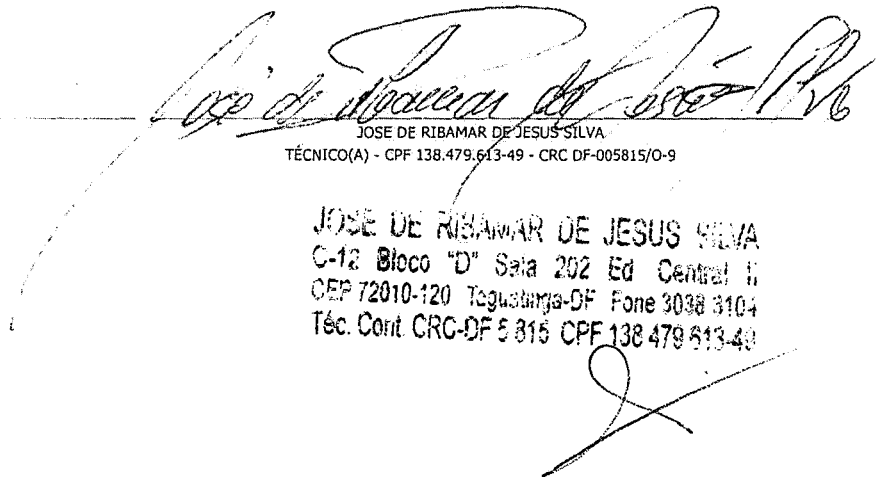 José de Ribamar de Jesus Silva
JOSE DE RIBAMAR DE JESUS SILVA
TÉCNICO(A) - CPF 138.479.613-49 - CRC DF-005815/O-9
JOSE DE RIBAMAR DE JESUS SILVA
C-12 Bloco "D" Sala 202 Ed Central II
CEP 72010-120 Taguatinga-DF Fone 3038 3104
Téc. Cont. CRC-DF 5 815 CPF 138 479 613-49